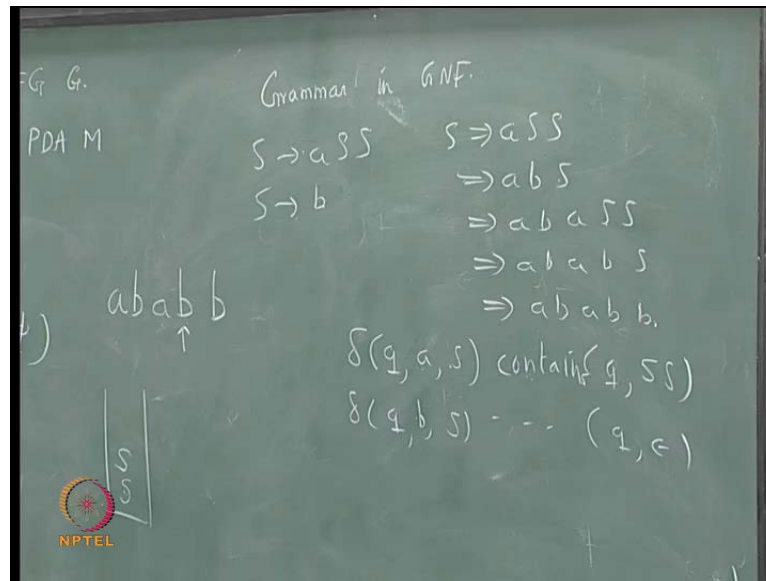 =G G.
PDA M
Grammar in GNF.
S → a S S
S → b
S ⇒ a S S
⇒ a b S
⇒ a b a S S
⇒ a b a b S
⇒ a b a b b.
a b a b b
↑
)
δ(q, a, S) contains q, SS)
δ(q, b, S) ---- (q, ϵ)
S
S
NPTEL